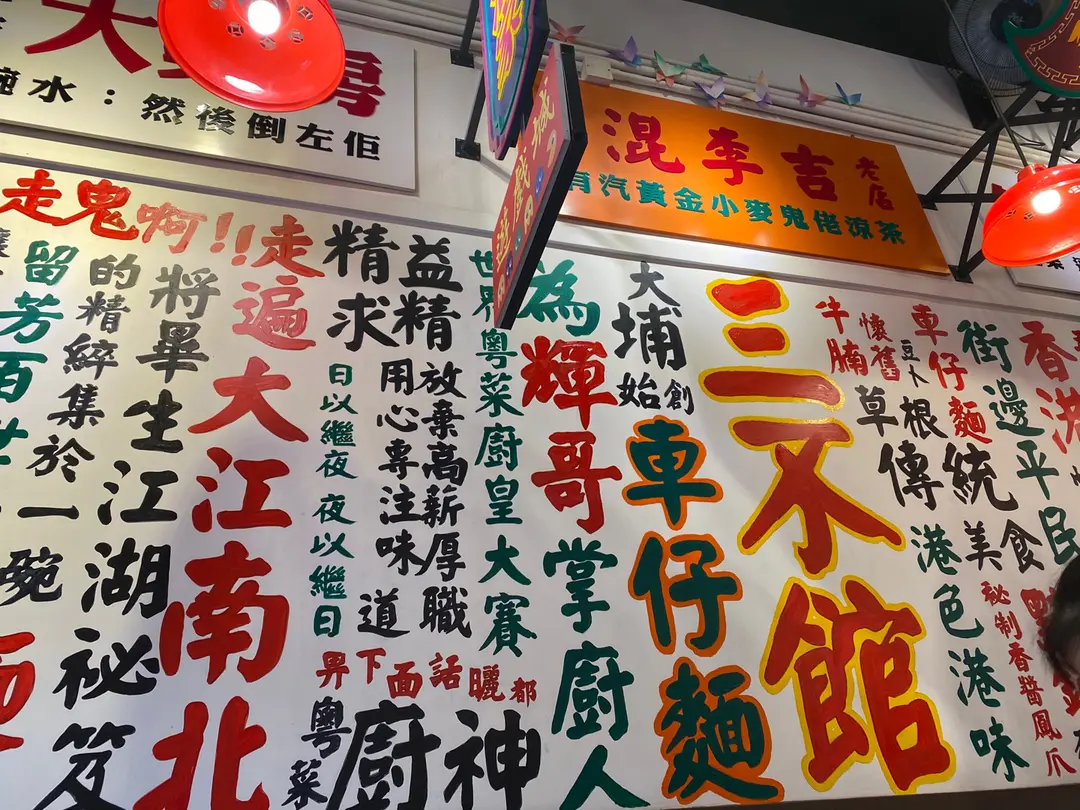 碗水：然後倒左佢
混李吉老店
有汽黃金小麥鬼佬涼茶
走鬼啊!!
香港
街邊平民
車仔麵
豆卜
懷舊
牛腩
草根
傳統
美食
港色港味
秘制香醬鳳爪
三不館
大埔始創
車仔麵
為輝哥掌廚人
世界粵菜廚皇大賽
精益求精
放棄高薪厚職
用心專注味道
日以繼夜夜以繼日
都曬話面下畀
粵菜
廚神
走遍大江南北
將畢生江湖祕笈
的精綷集於一碗
留芳百世